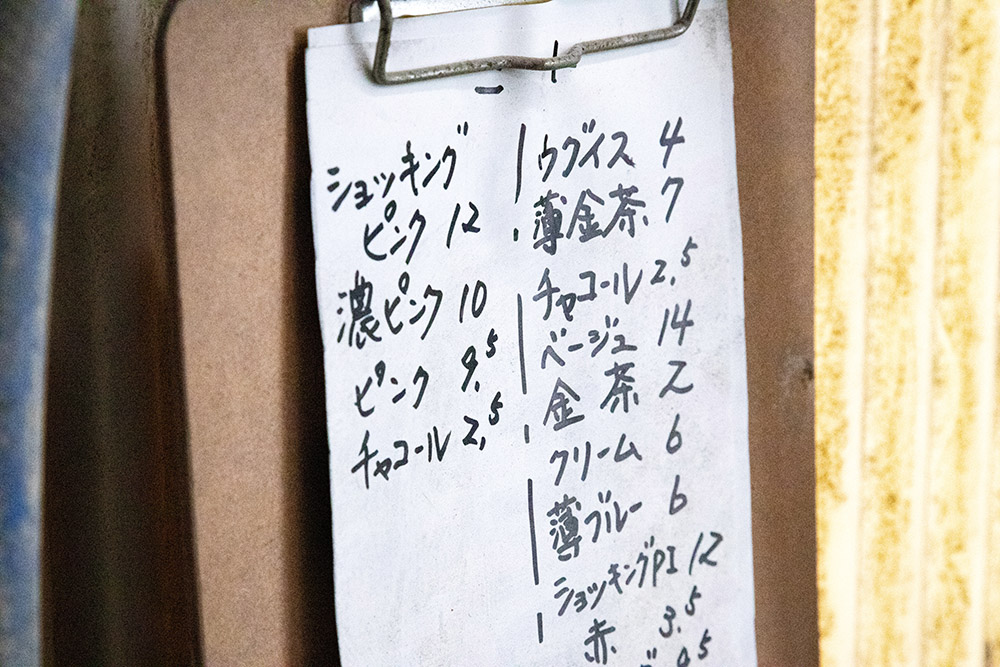 ショッキング
ピンク 12
濃ピンク 10
ピンク 9.5
チャコール 2.5
ウグイス 4
薄金茶 7
チャコール 2.5
ベージュ 14
金茶 2
クリーム 6
薄ブルー 6
ショッキングPI 12
赤 3.5